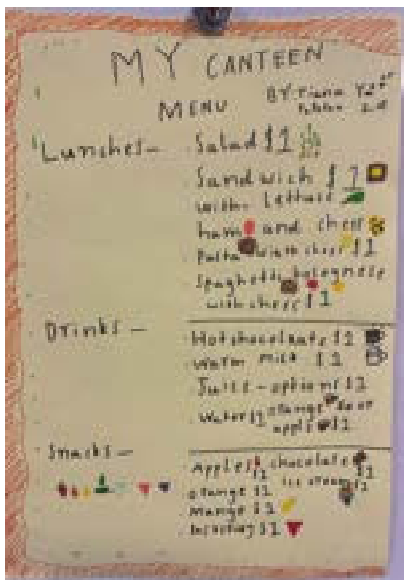 MY CANTEEN
MENU
BY Tiana
Lunches - Salad $1
Sandwich $1
with Lettuce
ham and chees
Pasta with chees $1
Spaghetti bolognese
with chees $1
Drinks - Hot chocolate $1
Warm milk $1
Juice - options $1
Water $1 orange
apple $1
Snacks -
Apple $1 chocolate $1
orange $1 ice cream $1
Mango $1
$1